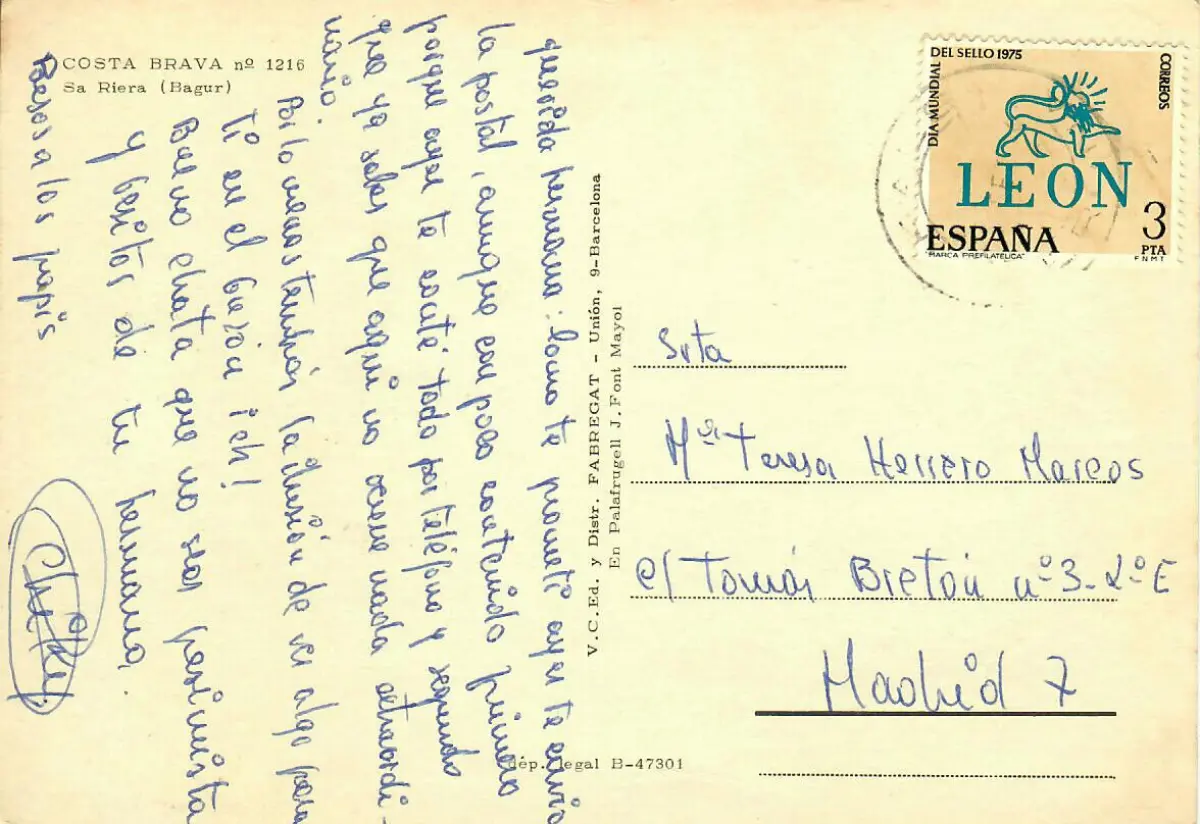 COSTA BRAVA nº 1216
Sa Riera (Bagur)
querida hermana: como te prometí ayer te envio
la postal, aunque con poco contenido primero
porque ayer te conté todo por teléfono y segundo
que ya sabes que aqui no ocurre nada extraordi-
nario.
Por lo menos tendrás la ilusión de ver algo para
ti en el buzón ¡eh!
Bueno chata que no seas pesimista
y besitos de tu hermana.
Besos a los papis
V.C.Ed. y Distr. FABREGAT - Unión, 9-Barcelona
En Palafrugell J. Font Mayol
dép. legal B-47301
DIA MUNDIAL DEL SELLO 1975
CORREOS
LEON
ESPAÑA
3
PTA
"MARCA PREFILATELICA"
F.N.M.T.
Srta
Mª Teresa Herrero Marcos
c/ Tomás Bretón nº 3-2º E
Madrid 7